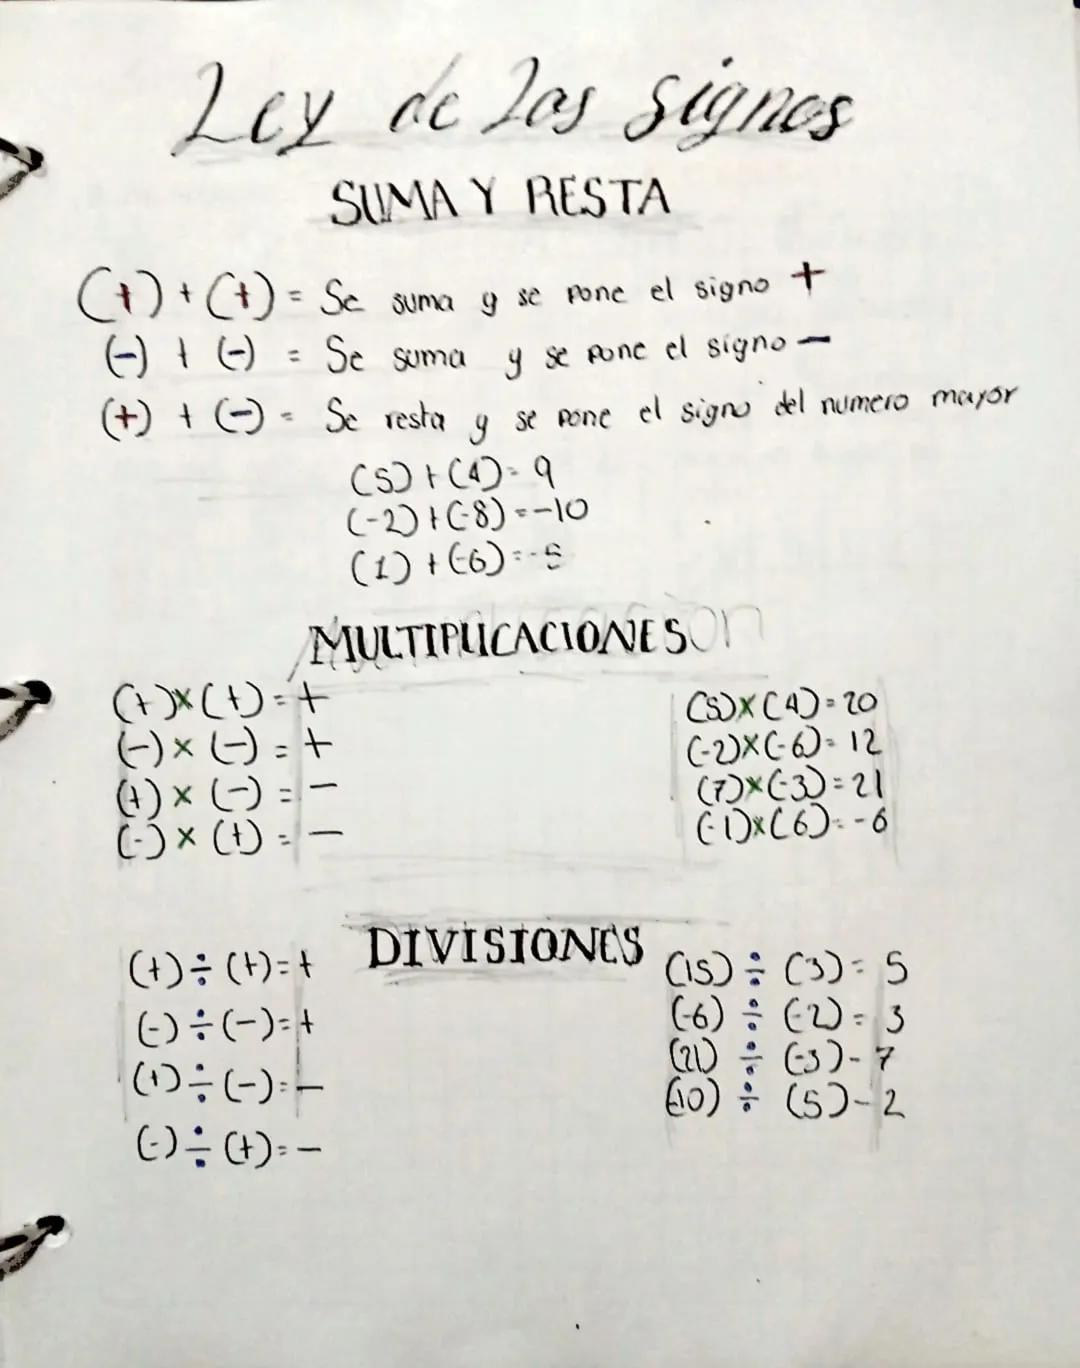 Ley de Las signos
SUMA Y RESTA
(+) + (+) = Se suma y se pone el signo +
(-) + (-) = Se suma y se pone el signo -
(+) + (-) = Se resta y se pone el signo del numero mayor
(5) + (4) = 9
(-2) + (-8) = -10
(1) + (-6) = -5
MULTIPLICACIONES
(+) x (+) = +
(-) x (-) = +
(+) x (-) = -
(-) x (+) = -
(5) x (4) = 20
(-2) x (-6) = 12
(7) x (-3) = 21
(-1) x (6) = -6
DIVISIONES
(+) ÷ (+) = +
(-) ÷ (-) = +
(+) ÷ (-) = -
(-) ÷ (+) = -
(15) ÷ (3) = 5
(-6) ÷ (-2) = 3
(21) ÷ (-3) - 7
(-10) ÷ (5) - 2